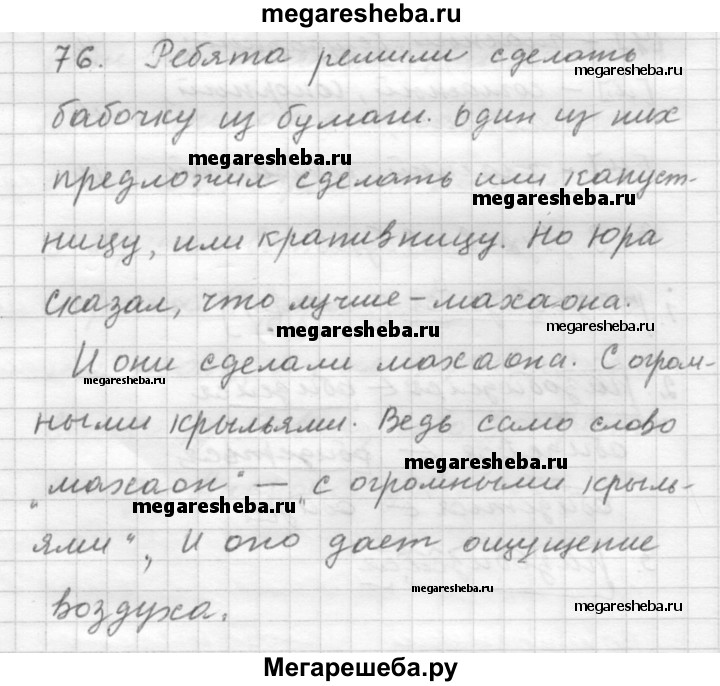 megaresheba.ru
76. Ребята решили сделать
megaresheba.ru
бабочку из бумаги. Один из них
megaresheba.ru
предложил сделать или капуст-
megaresheba.ru
ницу, или крапивницу. Но Юра
сказал, что лучше - махаона.
megaresheba.ru
megaresheba.ru
И они сделали махаона. С огром-
megaresheba.ru
ными крыльями. Ведь само слово
megaresheba.ru
„махаон" — „с огромными крыль-
megaresheba.ru
ями", И оно дает ощущение
воздуха.
megaresheba.ru
Мегарешеба.ру